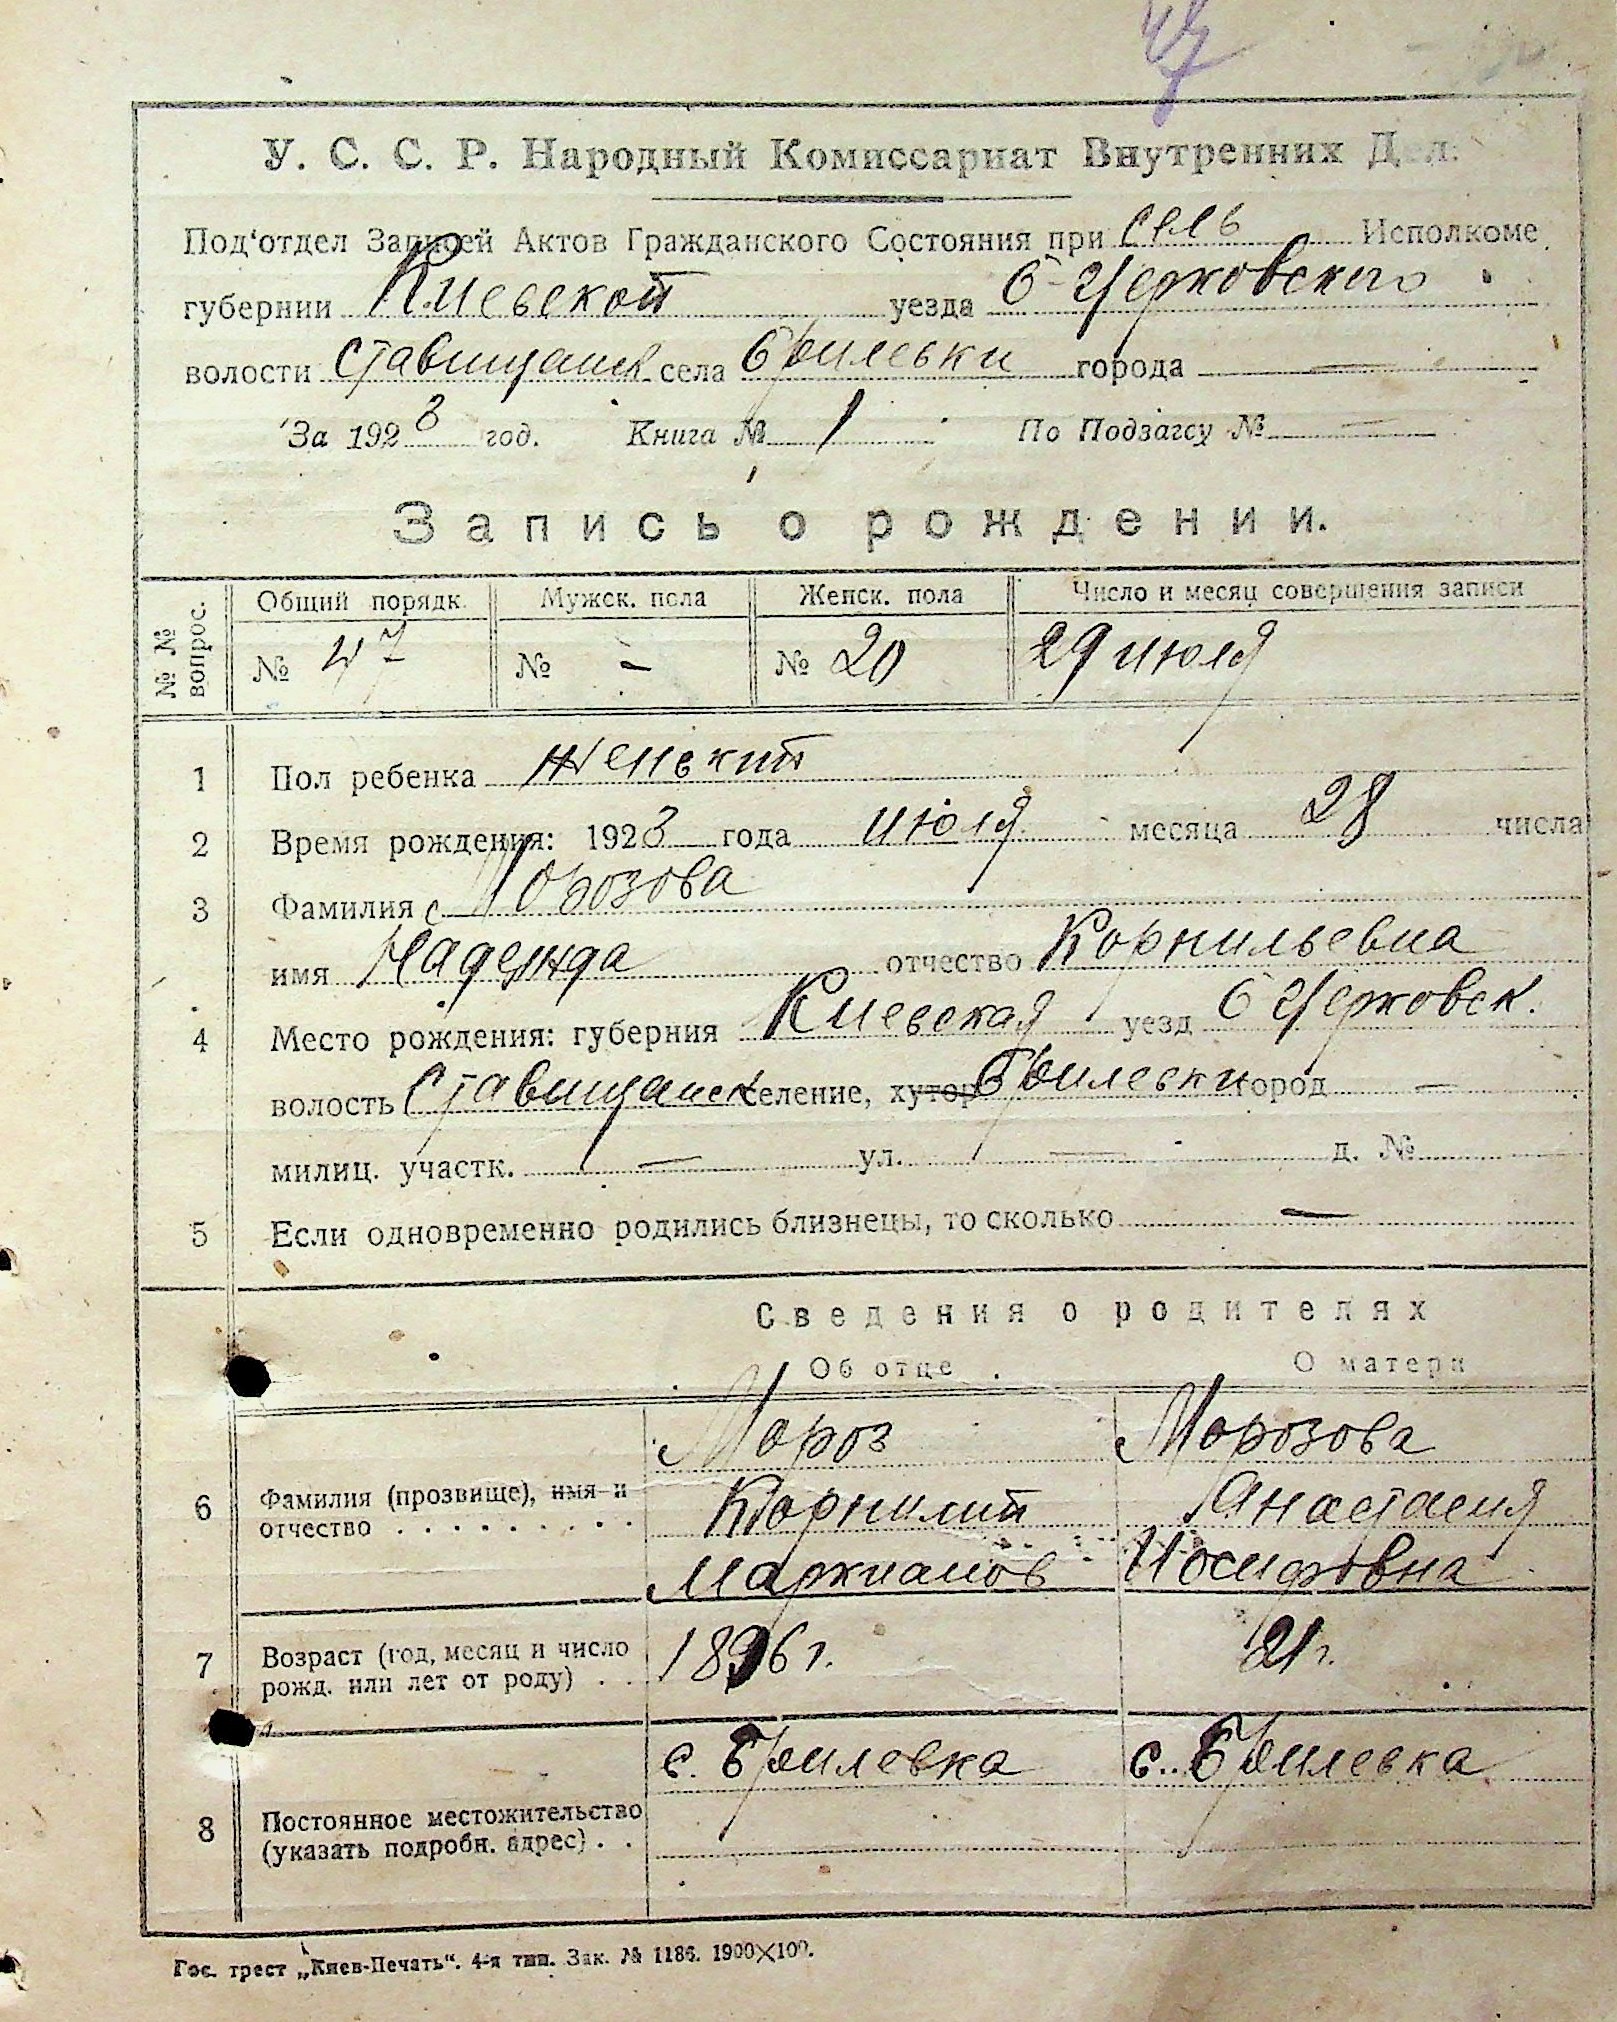 47
У. С. С. Р. Народный Комиссариат Внутренних Дел.
Под'отдел Записей Актов Гражданского Состояния при сель Исполкоме
губернии Киевской уезда Б-Церковского
волости Ставищанск села Брилевки города —
За 1923 год. Книга № 1 По Подзагсу № —
Запись о рождении.
№ № вопрос. Общий порядк. Мужск. пола Женск. пола Число и месяц совершения записи
№ 47 № - № 20 29 июля
1 Пол ребенка Женский
2 Время рождения: 1923 года июля месяца 28 числа
3 Фамилия Морозова
имя Надежда отчество Корнильевна
4 Место рождения: губерния Киевская уезд Б Церковск.
волость Ставищанск селение, хутор Брилевки город —
милиц. участк. — ул. — д. №
5 Если одновременно родились близнецы, то сколько —
Сведения о родителях
Об отце О матери
Мороз Морозова
6 Фамилия (прозвище), имя и Корнилий Анастасия
отчество Маркианов Иосифовна
7 Возраст (год, месяц и число 1896 г. 21 г.
рожд. или лет от роду)
с. Брилевка с. Брилевка
8 Постоянное местожительство
(указать подробн. адрес)
Гос. трест „Киев-Печать“. 4-я тип. Зак. № 1186. 1900×100.